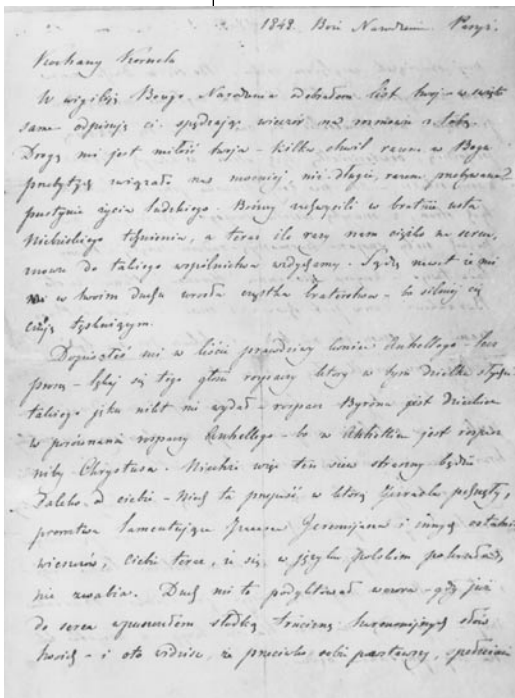 1842. Boże Narodzenie Paryż.
Kochany Kornelu
W wigilją Bożego Narodzenia odebrałem list twój – w święto
same odpisuję ci spędzając wieczór na rozmowie z tobą.
Drogą mi jest miłość twoja – kilka chwil razem w Bogu
przebytych związało nas mocniej, niż długie, razem przebywanie
pustynie życia ludzkiego. Bośmy w bratnie usta
Niebieskiego tchnienia, a teraz ile razy nam ciężko na sercu,
znowu do takiego wspólnictwa wzdychamy. Sądzę nawet iż mi
w twoim duchu wzrosła cząstka braterstwa – bo silniej cię
czuję tęskniącym.
Dopisałeś mi w liście prawdziwy koniec Anhellego – lecz
proszę – lękaj się tego głosu rozpaczy który w tym dziełku słychać
takiego jak nikt nie wydał – rozpacz Byrona jest dziecinna
w porównaniu rozpaczy Anhellego – bo w Anhellim jest rozpacz
niby Chrystusa. Niechże więc ten siew straszny będzie
daleko od ciebie – Niech ta przepaść w którą Izraela pchnęły,
proroctwa lamentujące Jeremijasza i innych ostatnich
wieszczów, ciebie teraz, iż się w języku polskim pokazała,
nie zwabia. Duch mi to podyktował wczora – gdy już
do serca wpuszczałem słodką truciznę harmonijnych słów
twoich – i oto widzisz, że przeciwko sobie powstawszy, spełniam